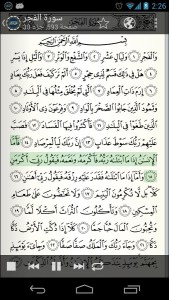 2:26
سورة الفجر
صفحة 593، جزء 30
بِسْمِ اللَّهِ الرَّحْمَٰنِ الرَّحِيمِ
وَالْفَجْرِ ١ وَلَيَالٍ عَشْرٍ ٢ وَالشَّفْعِ وَالْوَتْرِ ٣ وَاللَّيْلِ إِذَا يَسْرِ
٤ هَلْ فِي ذَٰلِكَ قَسَمٌ لِّذِي حِجْرٍ ٥ أَلَمْ تَرَ كَيْفَ فَعَلَ رَبُّكَ بِعَادٍ ٦
إِرَمَ ذَاتِ الْعِمَادِ ٧ الَّتِي لَمْ يُخْلَقْ مِثْلُهَا فِي الْبِلَادِ ٨
وَثَمُودَ الَّذِينَ جَابُوا الصَّخْرَ بِالْوَادِ ٩ وَفِرْعَوْنَ ذِي الْأَوْتَادِ ١٠
الَّذِينَ طَغَوْا فِي الْبِلَادِ ١١ فَأَكْثَرُوا فِيهَا الْفَسَادَ ١٢ فَصَبَّ
عَلَيْهِمْ رَبُّكَ سَوْطَ عَذَابٍ ١٣ إِنَّ رَبَّكَ لَبِالْمِرْصَادِ ١٤ فَأَمَّا
الْإِنسَانُ إِذَا مَا ابْتَلَاهُ رَبُّهُ فَأَكْرَمَهُ وَنَعَّمَهُ فَيَقُولُ رَبِّي أَكْرَمَنِ
١٥ وَأَمَّا إِذَا مَا ابْتَلَاهُ فَقَدَرَ عَلَيْهِ رِزْقَهُ فَيَقُولُ رَبِّي أَهَانَنِ ١٦
كَلَّا بَل لَّا تُكْرِمُونَ الْيَتِيمَ ١٧ وَلَا تَحَاضُّونَ عَلَىٰ طَعَامِ
الْمِسْكِينِ ١٨ وَتَأْكُلُونَ التُّرَاثَ أَكْلًا لَّمًّا ١٩
وَتُحِبُّونَ الْمَالَ حُبًّا جَمًّا ٢٠ كَلَّا إِذَا دُكَّتِ الْأَرْضُ
دَكًّا دَكًّا ٢١ وَجَاءَ رَبُّكَ وَالْمَلَكُ صَفًّا صَفًّا ٢٢ وَجِيءَ يَوْمَئِذٍ